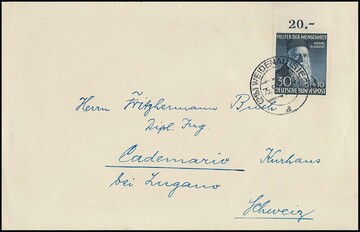 20.-
HELFER DER MENSCHHEIT
HENRI
DUNANT
30 + 10
DEUTSCHE BUNDESPOST
a
Herrn Fritzhermann
Dipl. Ing.
Cademario Kurhaus
bei Lugano
Schweiz